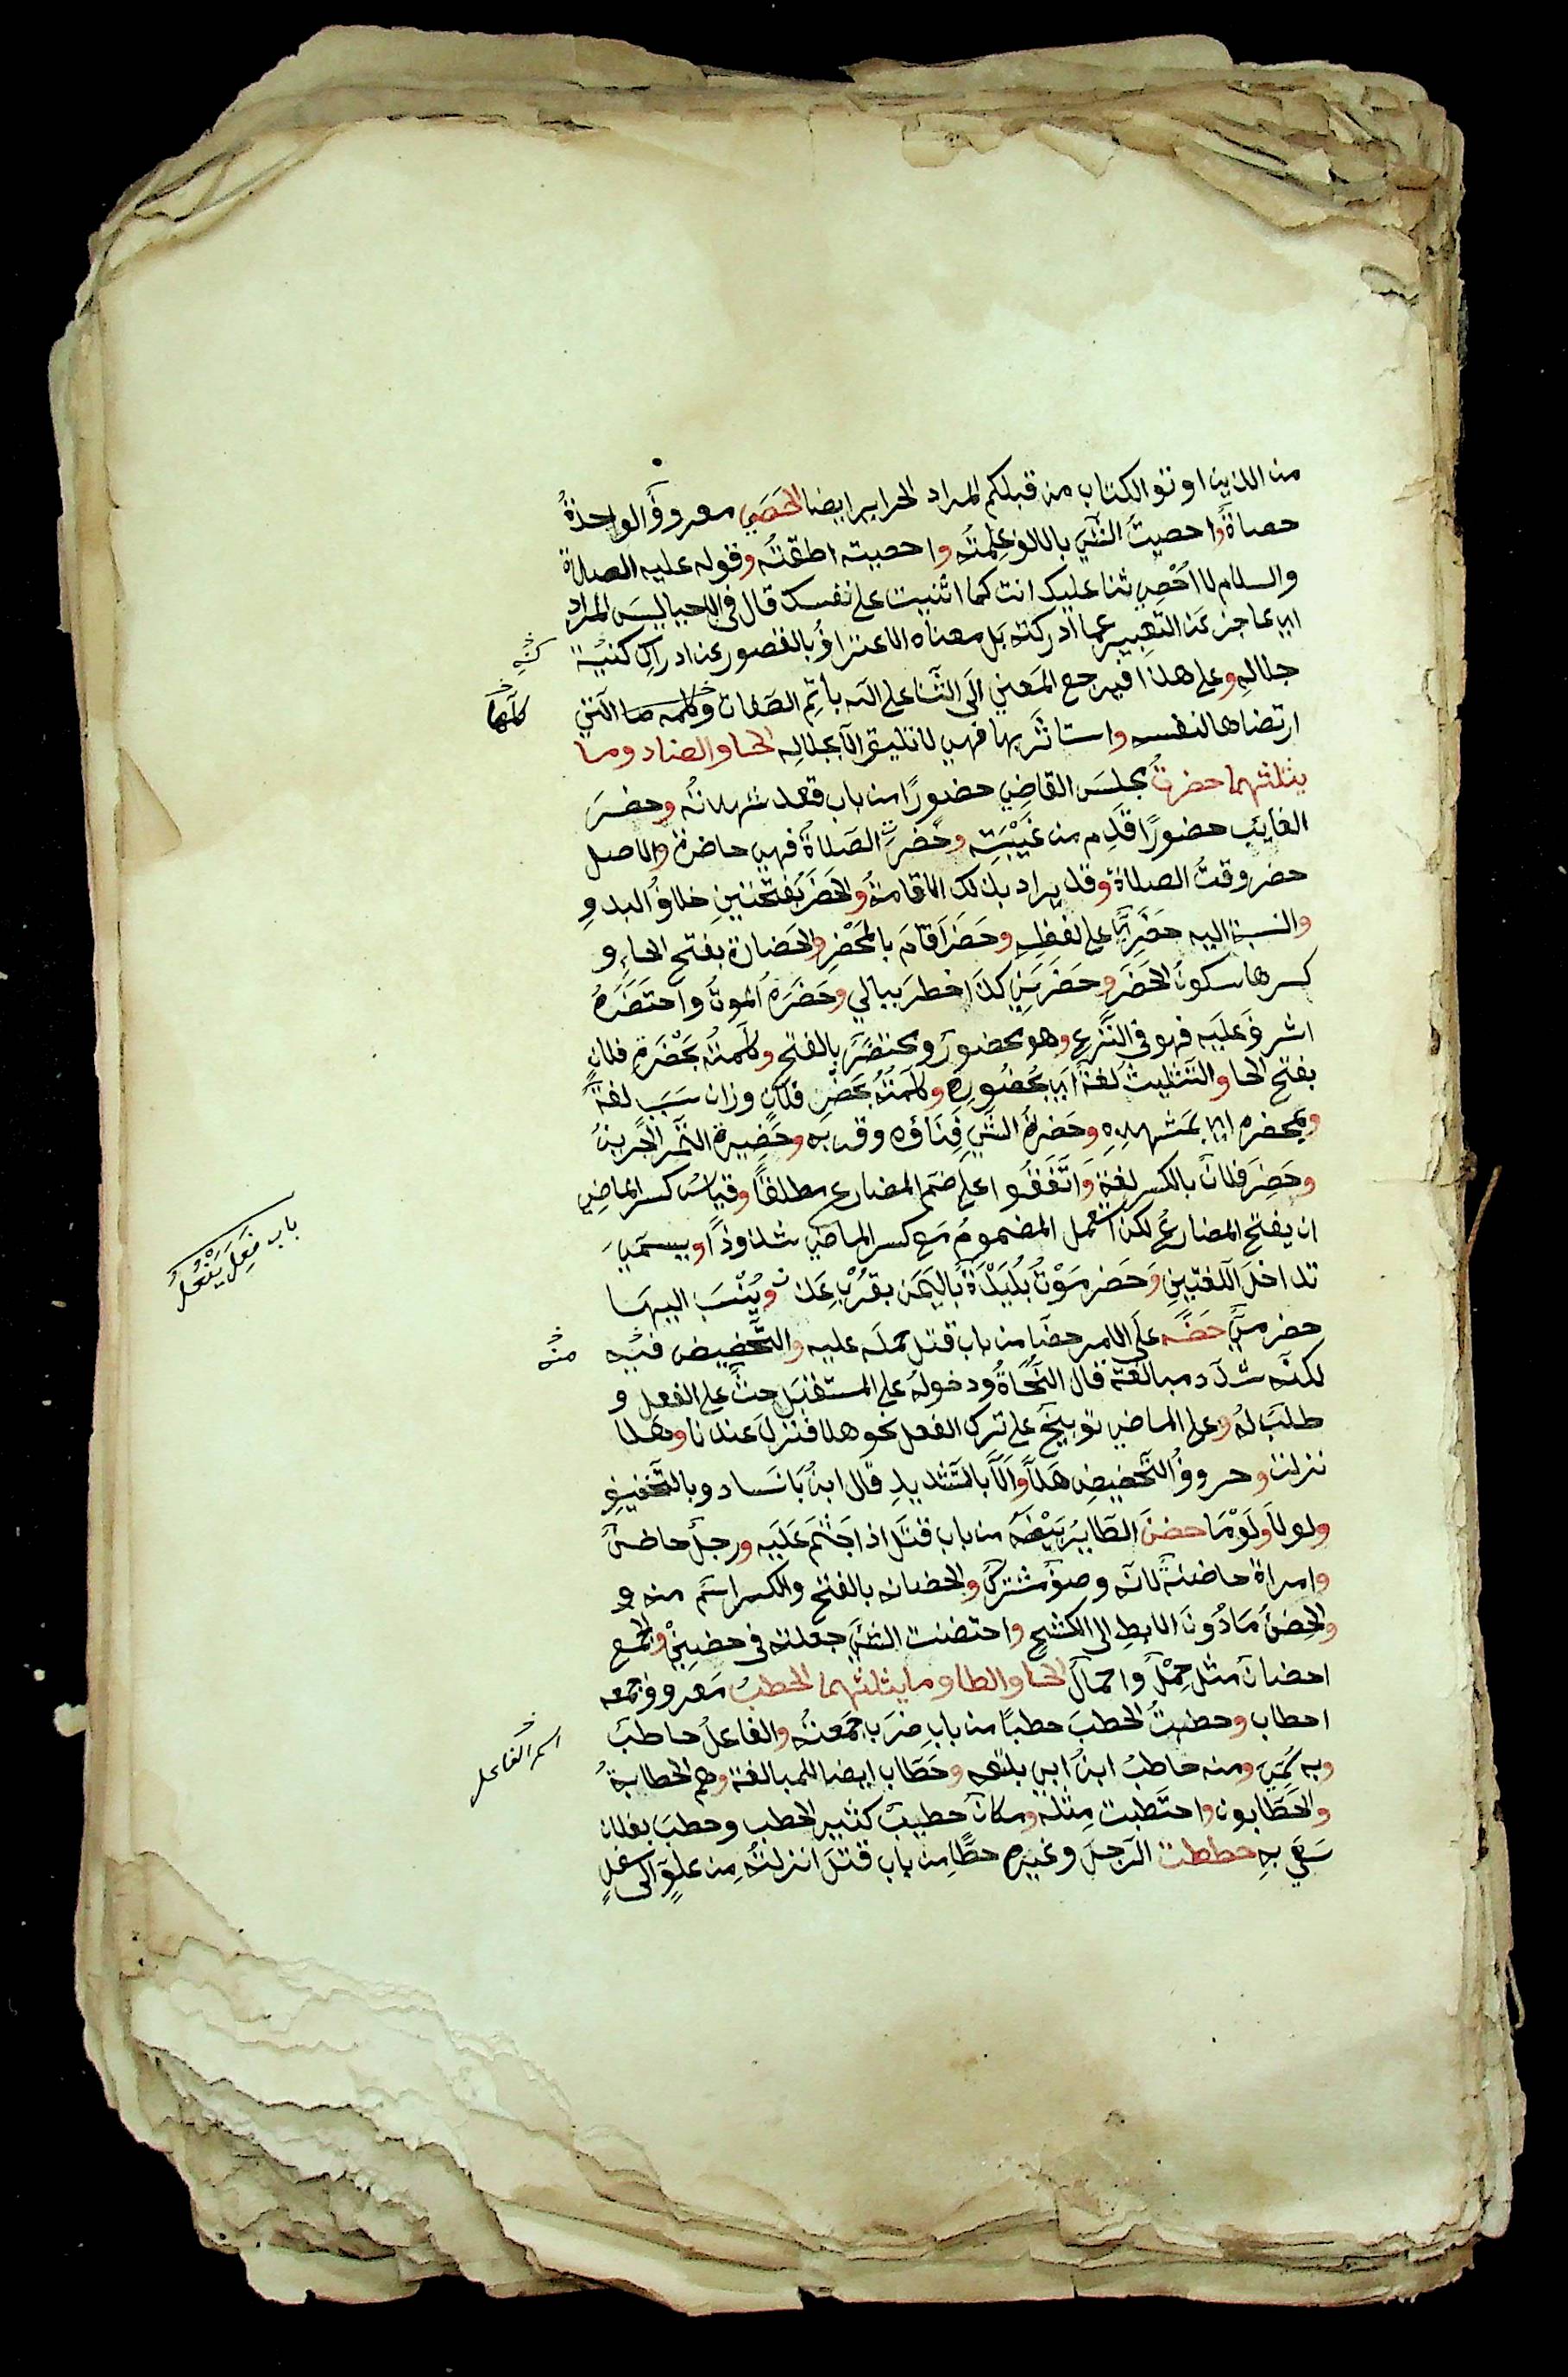 من الذين اوتو الكتاب من قبلكم المراد الحراير ايضا الحَصَي معروفٌ الواحدةُ
حصاةٌ واحصيتُ الشَّيَ بالالف علِمتُه واحصيته اطقتُه وقوله عليه الصلاة
والسلام لا اُحْصِي ثنا عليك انت كما اثنيت على نفسك قال في الاحيا ليسَ المراد
اني عاجز عَن التعبير عما ادركته بَل معناه الاعترافُ بالقصور عن ادراكِ كنيْة
كنْه
جلالهِ وعلى هذا فيرجع المَعني الَى الثَّنا على الله بأتمّ الصّفات وكلمه ما التي
كلّها
ارتضاها لنفسه واستاثَر بها فهي لا تليق الّا بجلالِه الحا والضاد وما
يثلثهما حضرتُ مجلسَ القاضِي حضورًا من باب قعد شهدتُه وحضرَ
الغايب حضورًا قَدِم من غَيْبَتِه وحَضرتِ الصَلاةُ فهي حاضرة والاصل
حضر وقتُ الصلاة وقد يراد بذلك الاقامةُ والحَضَرُ بفتحتينِ خلافُ البدوِ
والنسبة اليه حَضَرِيٌّ على لفظِهِ وحَضَرَ اقامَ بالحَضَرِ والحَضارة بفتح الحاءِ و
كسرها سكون الحَضَرِ وحَضَرَنِي كذا خطر ببالي وحَضَرَه الموتُ واحتَضَرَهُ
اشرفَ عَلَيه فهو في النَّزعِ وهو محضورٌ ومحتضَرٌ بالفتح وكلّمتُه بحَضْرةِ فلانٍ
بفتح الحا والتَّثليثُ لغةٌ اَي بحُضُورِهِ وكلّمتُهُ بحَضَرِ فلَانٍ وزان سَبَبٍ لغةٌ
وبمحضره اي بمَشهدِهِ وحَضرَةُ الشَّيءِ فِنَاؤه وقربه وحَضِيرة التَّمر الجَرينُ
وحَضِرَ فلانٌ بالكسر لغةٌ وَاتَّفَقُوا عَلَى ضمِّ المضارع مطلقًا وقياسُ كسرِ الماضي
ان يفتح المضارعُ لكن استُعمل المضموم مَع كسر الماضي شذوذًا ويسمَّي
باب فَعِلَ يَفْعُلُ
تداخلَ اللّغتينِ وَحَضرمَوْتُ بُلَيْدَةٌ بالَيَمَن بقُرْبِ عَدن ويُنْسَب اليهَا
حضرميٌّ حَضَّه علَى الامر حضًّا من باب قتل حملَه عليه والتَّحضِيض فيه
منْه
لكنّه شدّد مبالغة قال النّحَاةُ ودخولهُ على المستقبَلِ حثٌّ على الفعلِ و
طلبٌ لهُ وعلى الماضي توبيخٌ على ترك الفعل نحو هلا فتنزلُ عندنا وهلا
نزلت وحروفُ التَّحضِيضِ هَلّا واَلّا بالتّشديدِ قَال ابنُ بَابَشاد وبالتّخفيفِ
ولولَا ولَوْمَا حضنَ الطّايرُ بَيْضَهُ من باب قَتَل اذا جَثَم عَلَيه ورجلٌ حاضِنٌ
وامراة حاضنةٌ لانّه وصفٌ مشتركٌ والحضانه بالفتح والكسر اسم منه و
والحِضنُ مَادُونَ الابطِ الى الكشحِ واحتضنت الشّيَ جعلته في حضنِيْ والجمعِ
احضانٌ مثل حِمْلٍ واحمالٍ الحا والطا وما يثلثهما الحطبُ مَعروف وجمعه
احطاب وحطبتُ الحطبَ حطبًا من باب ضرَب جمَعتُه والفاعلُ حاطبٌ
اسم الفاعل
وبه سُمِّيَ ومنه حاطبُ ابنُ ابي بلتعه وحَطّاب ايضا للمبالغة وهم الحطابةُ
والحَطّابون واحتَطبت مِثلُه ومكانٌ حطيبٌ كثير الحطب وحطبَ بفلان
سَعَي بهِ حططت الرّجلَ وغيره حطًّا مِن باب قتلَ انزلتُه مِن علوٍّ الى سفلٍ